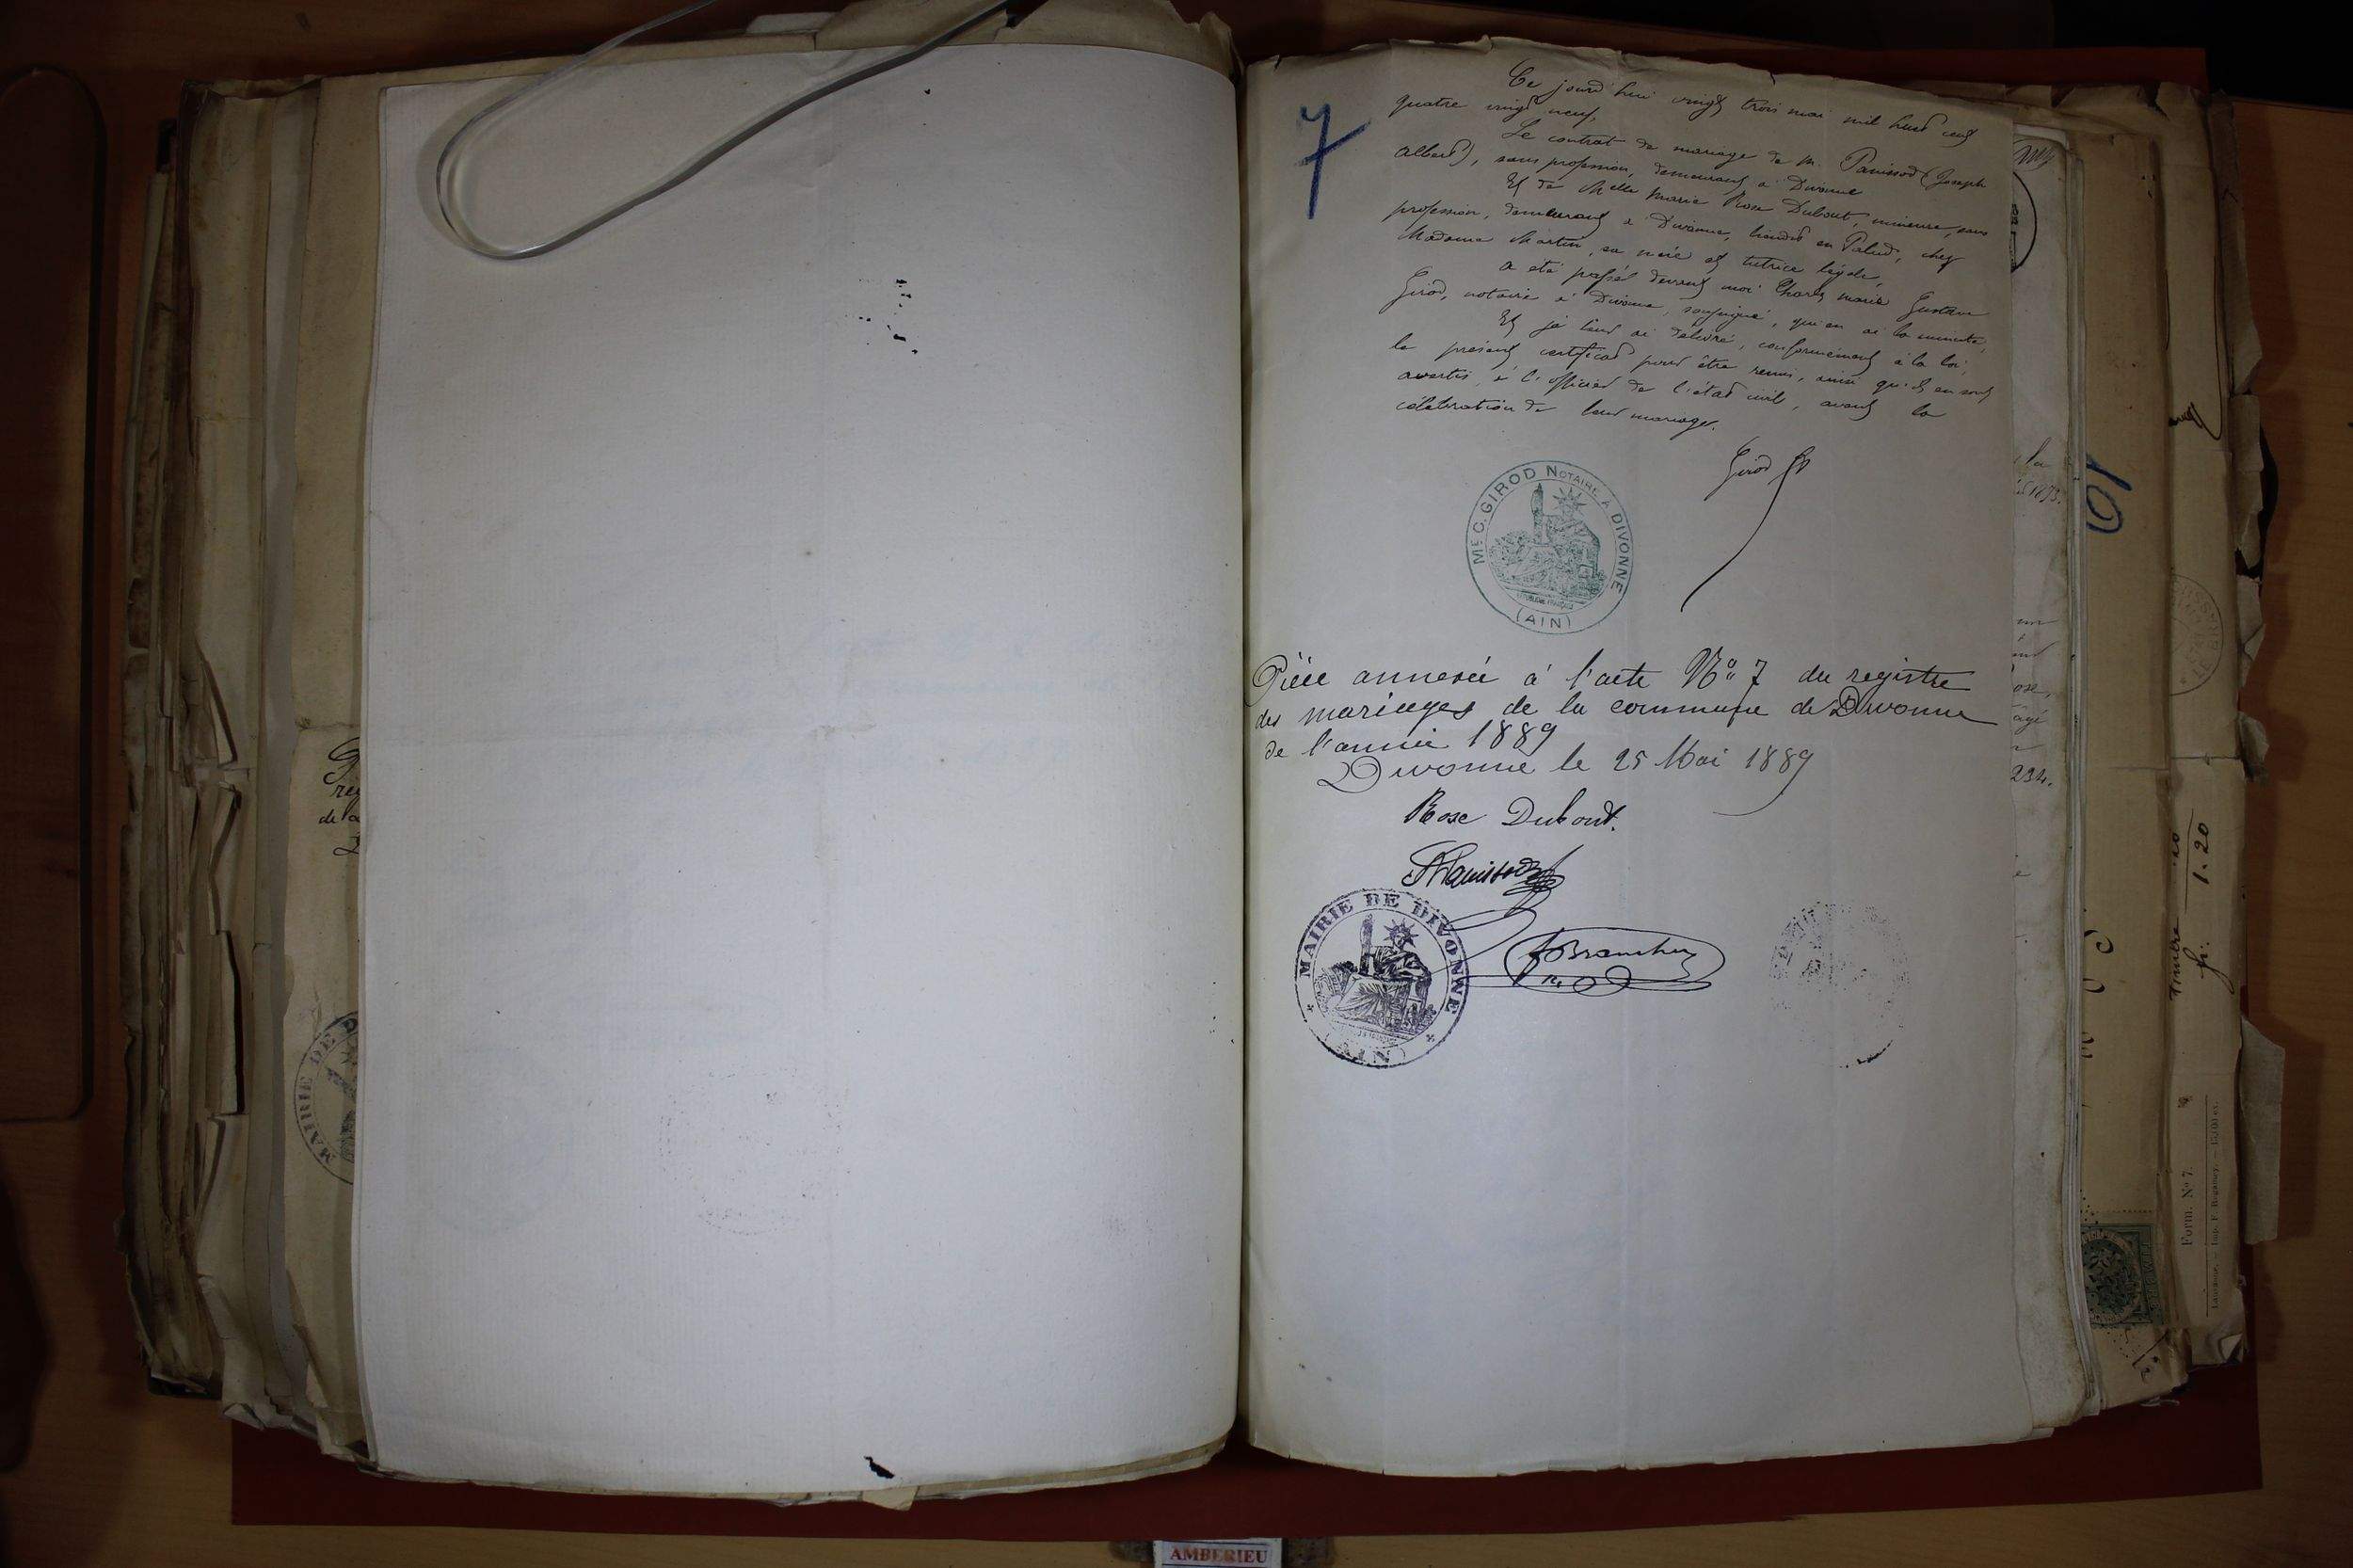 7
Ce jourd'hui vingt trois mai mil huit cent
quatre vingt neuf,
Le contrat de mariage de M. Panissod (Joseph
Albert), sans profession, demeurant à Divonne
Et de Melle Marie Rose Dubout, mineure, sans
profession, demeurant à Divonne, lieudit en Palud, chez
Madame Martin, sa mère et tutrice légale,
a été passé devant moi Charles Marie Gustave
Girod, notaire à Divonne, soussigné, qui en ai la minute,
Et je leur ai délivré, conformément à la loi,
le présent certificat pour être remis, ainsi qu'ils en sont
avertis, à l'officier de l'état civil, avant la
célébration de leur mariage.
Girod
ME C. GIROD NOTAIRE A DIVONNE
(AIN)
Pièce annexée à l'acte No 7 du registre
des mariages de la commune de Divonne
de l'année 1889
Divonne le 25 Mai 1889
Rose Dubout.
APanissod
MAIRIE DE DIVONNE
(AIN)
MAIRIE DE D
de la
10
la
1.20
fr:
234.
Form. No 7.
AMBERIEU